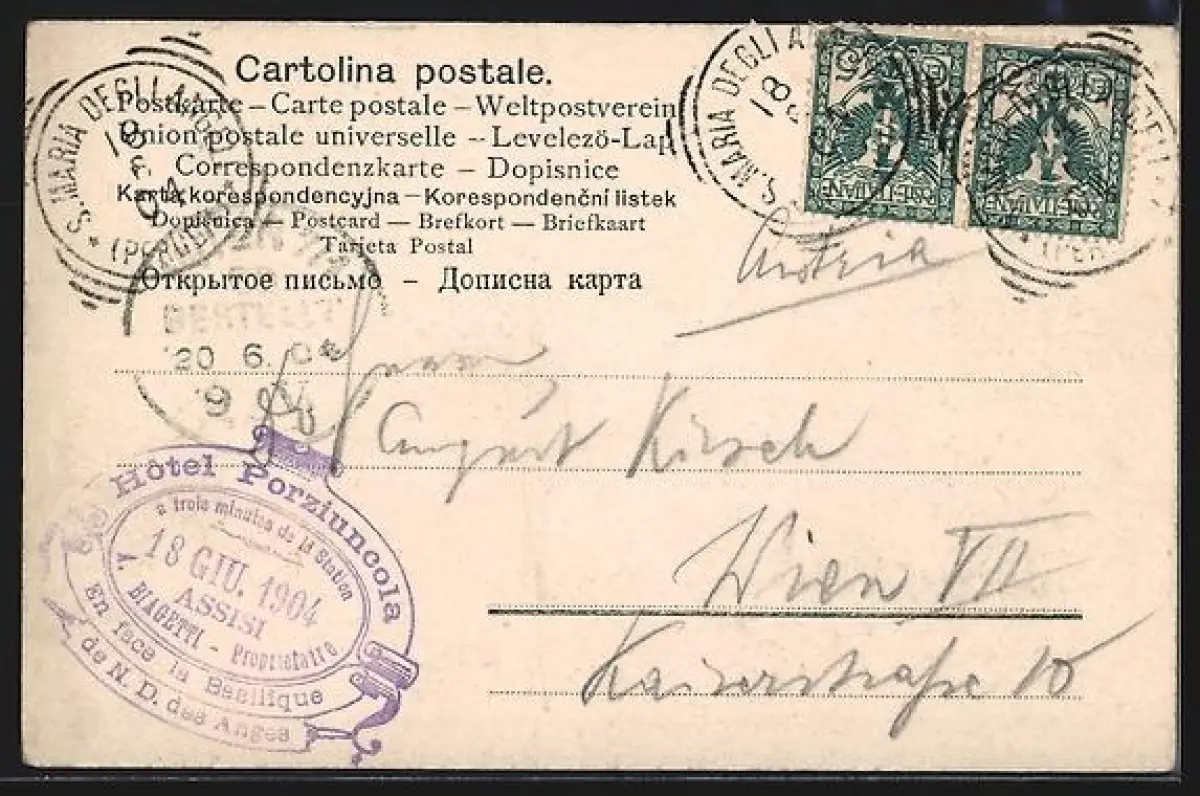 Cartolina postale.
Postkarte – Carte postale – Weltpostverein
Union postale universelle – Levelezö-Lap
Correspondenzkarte – Dopisnice
Karta korespondencyjna – Korespondenční listek
Dopisnica – Postcard – Brefkort – Briefkaart
Tarjeta Postal
Открытое письмо – Дописна карта
S. MARIA DEGLI ANG
18
(PERUG
S. MARIA DEGLI A
18
POSTE ITALIANE
POSTE ITALIANE
DEGLI
(PER
Austria
20 6. 0
9
Herrn
August Kirsch
Wien VII
Kaiserstraße 10
Hôtel Porziuncola
a trois minutes de la Station
18 GIU. 1904
ASSISI
A. BIAGETTI - Proprietaire
En face la Basilique
de N. D. des Anges